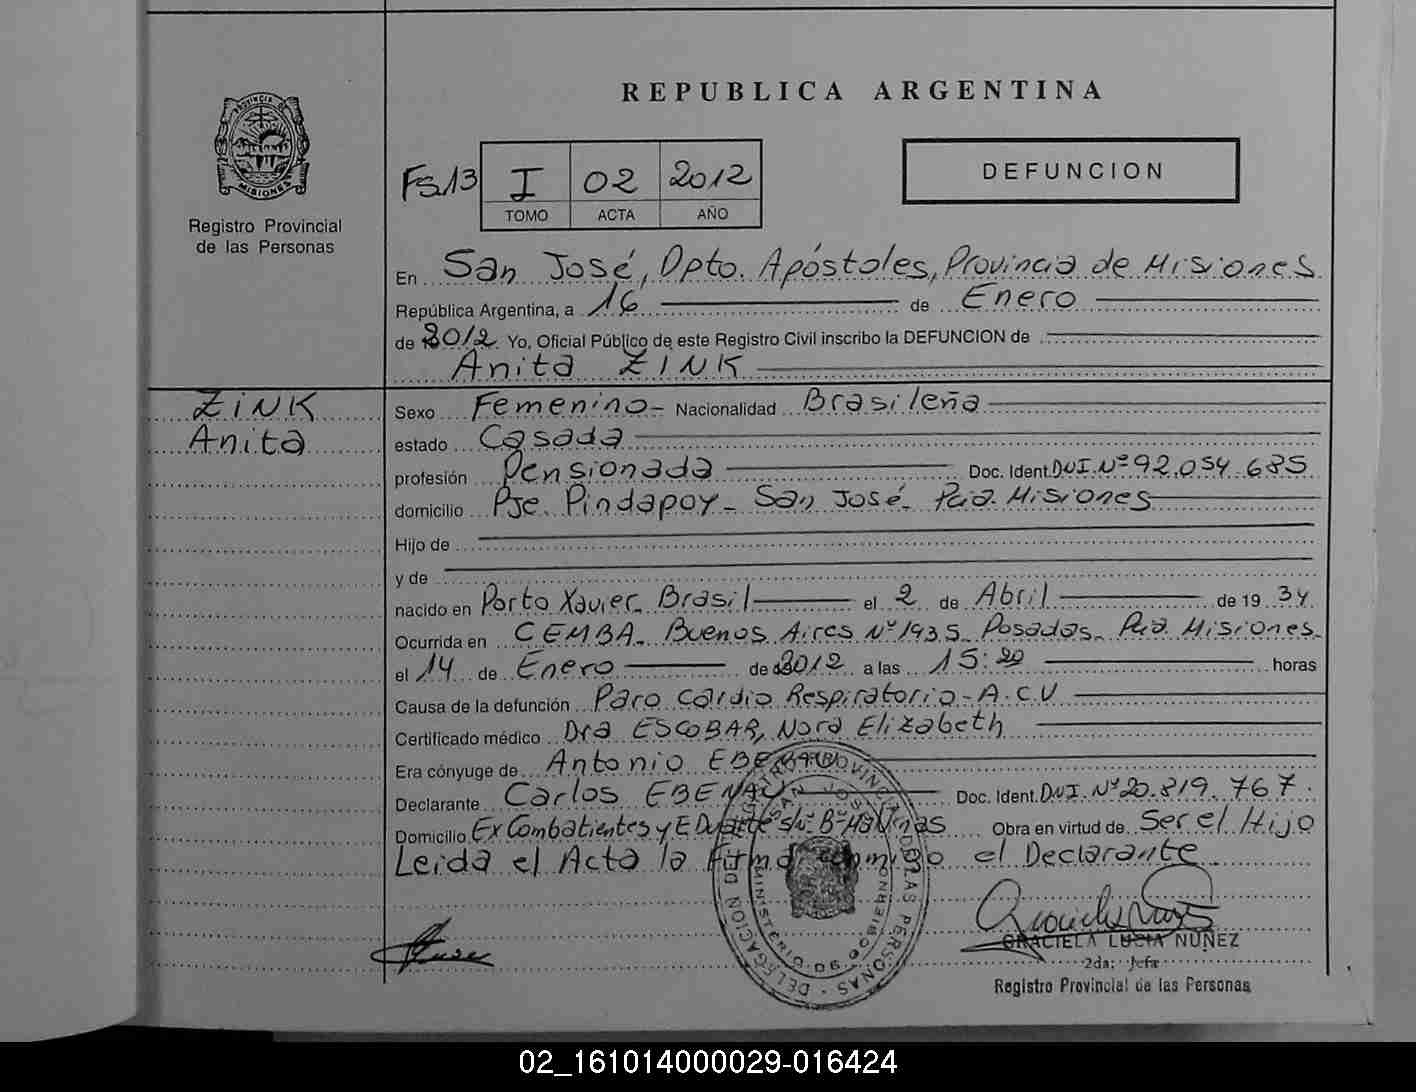 REPUBLICA ARGENTINA
PROVINCIA DE
MISIONES
Registro Provincial
de las Personas
FS.13
I 02 2012
TOMO ACTA AÑO
DEFUNCION
En San José, Dpto. Apóstoles, Provincia de Misiones
República Argentina, a 16 de Enero
de 2012 Yo, Oficial Público de este Registro Civil inscribo la DEFUNCION de
Anita ZINK
ZINK
Anita
Sexo Femenino - Nacionalidad Brasileña
estado Casada
profesión Pensionada Doc. Ident. DNI. Nº 92.054.685
domicilio Pje. Pindapoy - San José - Pcia. Misiones
Hijo de
y de
nacido en Porto Xavier - Brasil el 2 de Abril de 19 34
Ocurrida en CEMBA - Buenos Aires Nº 1935 - Posadas - Pcia. Misiones -
el 14 de Enero de 2012 a las 15:20 horas
Causa de la defunción Paro Cardio Respiratorio - A.C.V
Certificado médico Dra ESCOBAR, Nora Elizabeth
Era cónyuge de Antonio EBENAU
Declarante Carlos EBENAU Doc. Ident. DNI. Nº 20.819.767.
Domicilio Ex Combatientes y E Duarte S/Nº Bº Malvinas Obra en virtud de Ser el Hijo
Leída el Acta la Firma conmigo el Declarante
DELEGACION DEL REGISTRO PROVINCIAL DE LAS PERSONAS
SAN JOSE
MINISTERIO DE GOBIERNO
GRACIELA LUCIA NUÑEZ
2da. Jefa
Registro Provincial de las Personas
02_161014000029-016424